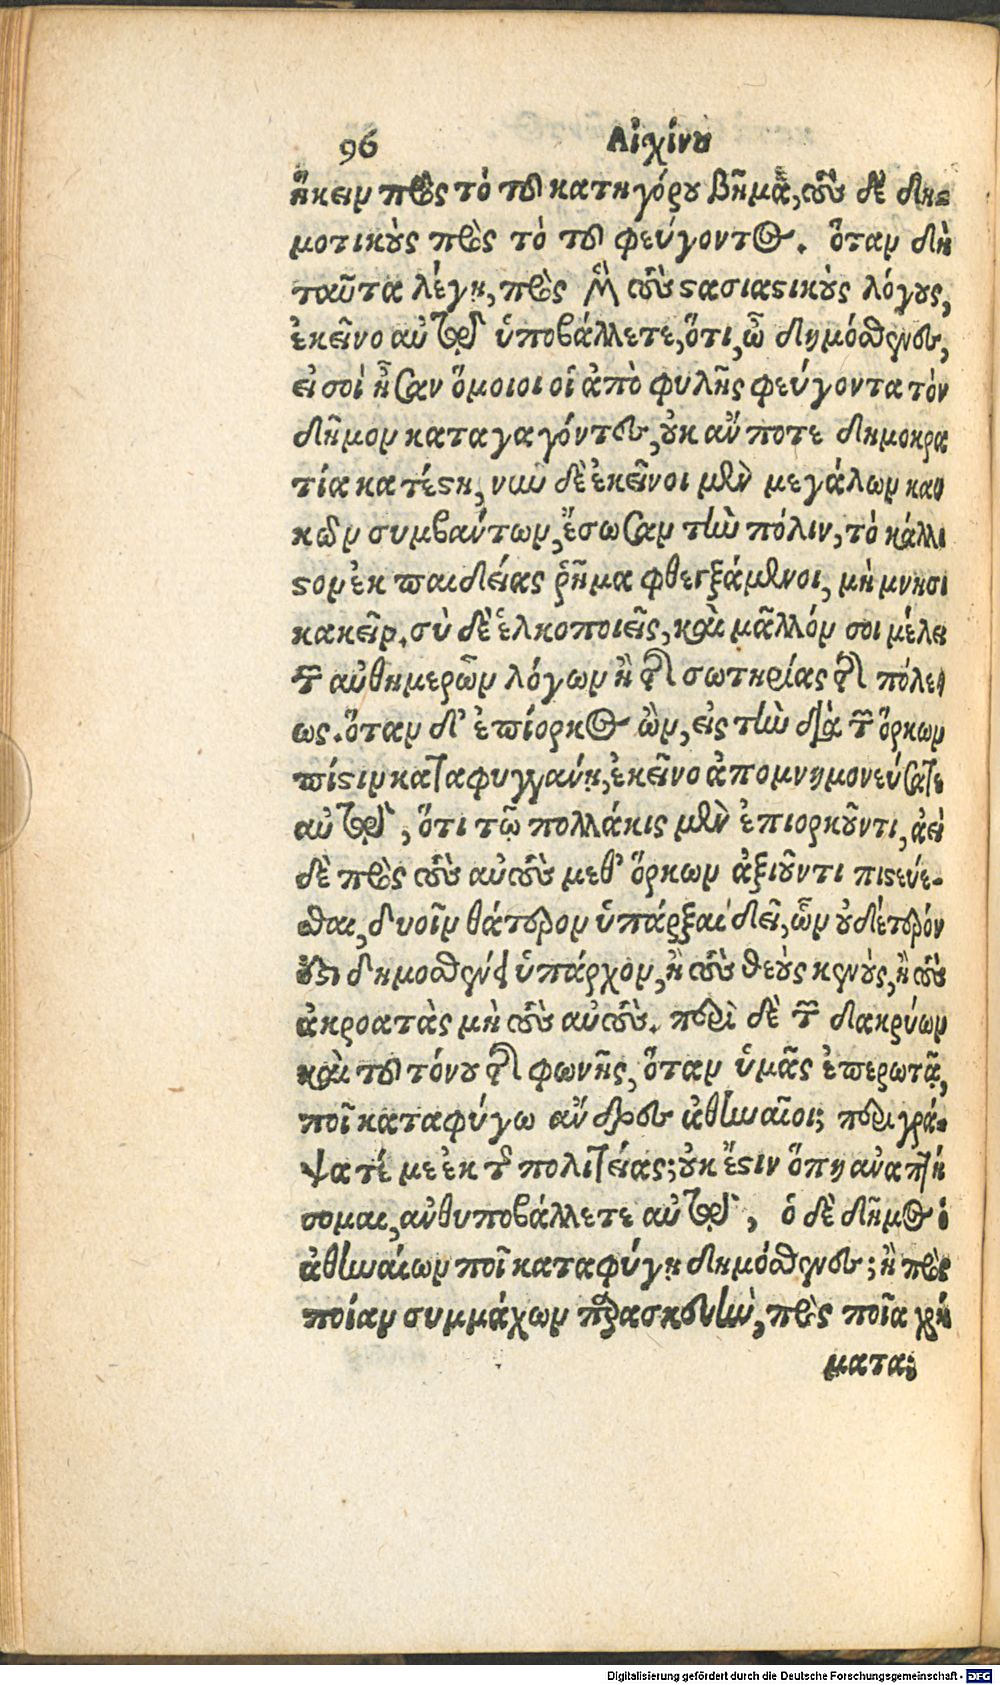 96 Αἰχίνου
ἥκειν πρὸς τὸ τοῦ κατηγόρου βῆμα, τοὺς δὲ δη-
μοτικοὺς πρὸς τὸ τοῦ φεύγοντος. ὅταν δὴ
ταῦτα λέγῃ, πρὸς μὲν τοὺς στασιαστικοὺς λόγους,
ἐκεῖνο αὐτῷ ὑποβάλλετε, ὅτι, ὦ δημόσθενες,
εἰ σοὶ ἦσαν ὅμοιοι οἱ ἀπὸ φυλῆς φεύγοντα τὸν
δῆμον καταγαγόντες, οὐκ ἄν ποτε δημοκρα
τία κατέστη, νῦν δὲ ἐκεῖνοι μὲν μεγάλων κα
κῶν συμβάντων, ἔσωσαν τὴν πόλιν, τὸ κάλλι
στον ἐκ παιδείας ῥῆμα φθεγξάμενοι, μὴ μνησι
κακεῖν. σὺ δὲ ἑλκοποιεῖς, καὶ μᾶλλόν σοι μέλει
τῶν αὐθημερῶν λόγων ἢ τῆς σωτηρίας τῆς πόλε
ως. ὅταν δ' ἐπίορκος ὢν, εἰς τὴν διὰ τῶν ὅρκων
πίστιν καταφυγγάνῃ, ἐκεῖνο ἀπομνημονεύσατε
αὐτῷ, ὅτι τῷ πολλάκις μὲν ἐπιορκοῦντι, ἀεὶ
δὲ πρὸς τοὺς αὐτοὺς μεθ' ὅρκων ἀξιοῦντι πιστεύε-
σθαι, δυοῖν θάτερον ὑπάρξαι δεῖ, ὧν οὐδέτερόν
ἐστι δημοσθένει ὑπάρχον, ἢ τοὺς θεοὺς καινοὺς, ἢ τοὺς
ἀκροατὰς μὴ τοὺς αὐτούς. περὶ δὲ τῶν δακρύων
καὶ τοῦ τόνου τῆς φωνῆς, ὅταν ὑμᾶς ἐπερωτᾷ,
ποῖ καταφύγω ἄνδρες ἀθηναῖοι; περιγρά-
ψατέ με ἐκ τῆς πολιτείας; οὐκ ἔστιν ὅπη ἀναπτή
σομαι, ἀνθυποβάλλετε αὐτῷ, ὁ δὲ δῆμος ὁ
ἀθηναίων ποῖ καταφύγῃ δημόσθενες; ἢ πρὸς
ποίαν συμμάχων παρασκευὴν, πρὸς ποῖα χρή
ματα;
Digitalisierung gefördert durch die Deutsche Forschungsgemeinschaft - DFG